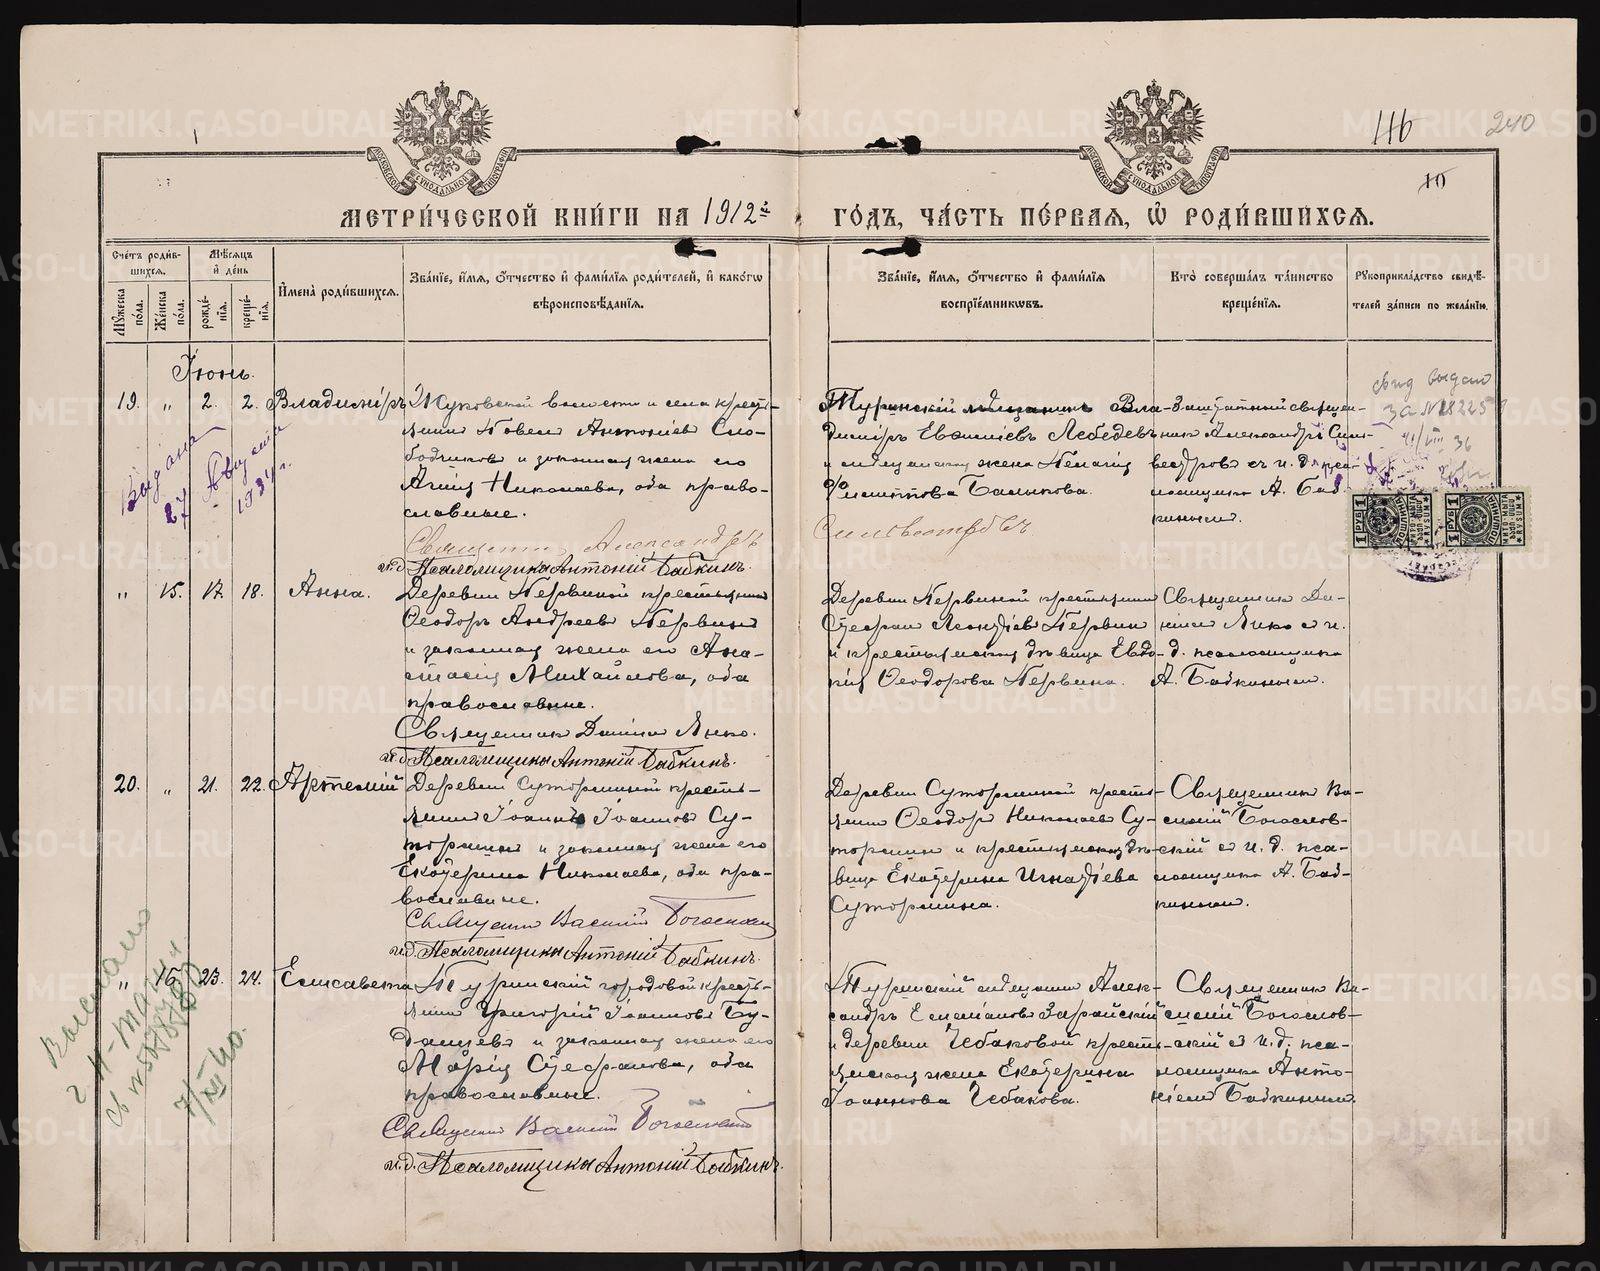 116
240
10
МОСКОВСКОЙ СѴНОДАЛЬНОЙ ТИПОГРАФІИ
МОСКОВСКОЙ СѴНОДАЛЬНОЙ ТИПОГРАФІИ
МЕТРИ́ЧЕСКОЙ КНИ́ГИ НА 1912й ГО́ДЪ, ЧА́СТЬ ПЕ́РВАЯ, Ѡ҆ РОДИ́ВШИХСЯ.
Сче́тъ роди́вшихся.
Мѣ́сяцъ и҆ де́нь
Мꙋ́жеска по́ла.
Же́нска по́ла.
рожде́нїя.
креще́нїя.
И҆мена̀ роди́вшихся.
Зва́нїе, и҆́мя, ѻ҆́тчество и҆ фами́лїя роди́телей, и҆ како́гѡ вѣроисповѣ́данїя.
Зва́нїе, и҆́мя, ѻ҆́тчество и҆ фами́лїя воспрїе́мникѡвъ.
Кто̀ соверша́лъ та́инство креще́нїя.
Рꙋкоприкла́дство свидѣ́телей за́писи по жела́нїю.
Іюнь.
19. „ 2. 2. Владиміръ
Жуковской волости и села кресть-
янин Павел Антоніев Сло-
бодчиков и законная жена его
Агнія Николаева, оба право-
славные.
Священник Александръ Сильвестровъ
и.д. Псаломщика Антоній Бабкинъ.
Туринскій мѣщанинъ Вла-
диміръ Евѳиміевъ Лебедевъ
и мѣщанская жена Пелагія
Филиппова Балыкова.
Заштатный священ-
ник Александръ Силь-
вестров съ и. д. пса-
ломщика А. Баб-
киным.
Выдана
27 Августа
1934 г.
свид выдано
за № 18225
21/VIII 36
1 РУБ
1 РУБ
ПОШЛИНА
ПОШЛИНА
„ 15. 17. 18. Анна.
Деревни Первиной крестьянин
Ѳеодоръ Андреев Первин
и законная жена его Ана-
стасія Михайлова, оба
православные.
Священник Даніил Янко.
и.д. Псаломщика Антоній Бабкинъ.
Деревни Первиной крестьянин
Стефан Леонтіев Первин
и крестьянская дѣвица Евдо-
кія Ѳеодорова Первина.
Священник Да-
ніил Янко с и.
д. псаломщика
А. Бабкиным.
20. „ 21. 22. Артемій
Деревни Суторминой кресть-
янин Іоаннъ Іоаннов Су-
тормин и законная жена его
Екатерина Николаева, оба пра-
вославные.
Священник Василій Богословскій
и.д. Псаломщика Антоній Бабкинъ.
Деревни Суторминой кресть-
янин Ѳеодор Николаев Су-
тормин и крестьянская дѣ-
вица Екатерина Игнатіева
Сутормина.
Священник Ва-
силій Богослов-
скій с и. д. пса-
ломщика А. Баб-
киным.
„ 16. 23. 24. Елисавета
Туринскій городовой кресть-
янин Григорій Іоаннов Бу-
данцев и законная жена его
Марія Стефанова, оба
православные.
Священник Василій Богословскій
и.д. Псаломщика Антоній Бабкинъ.
Туринскій мѣщанин Алек-
сандръ Емельянов Зарайскій
и деревни Чебаковой кресть-
янская жена Екатерина
Іоаннова Чебакова.
Священник Ва-
силій Богослов-
скій с и. д. пса-
ломщика Анто-
ніем Бабкиным.
Выслано
г. Н-Тагил
7/XII 40.
METRIKI.GASO-URAL.RU